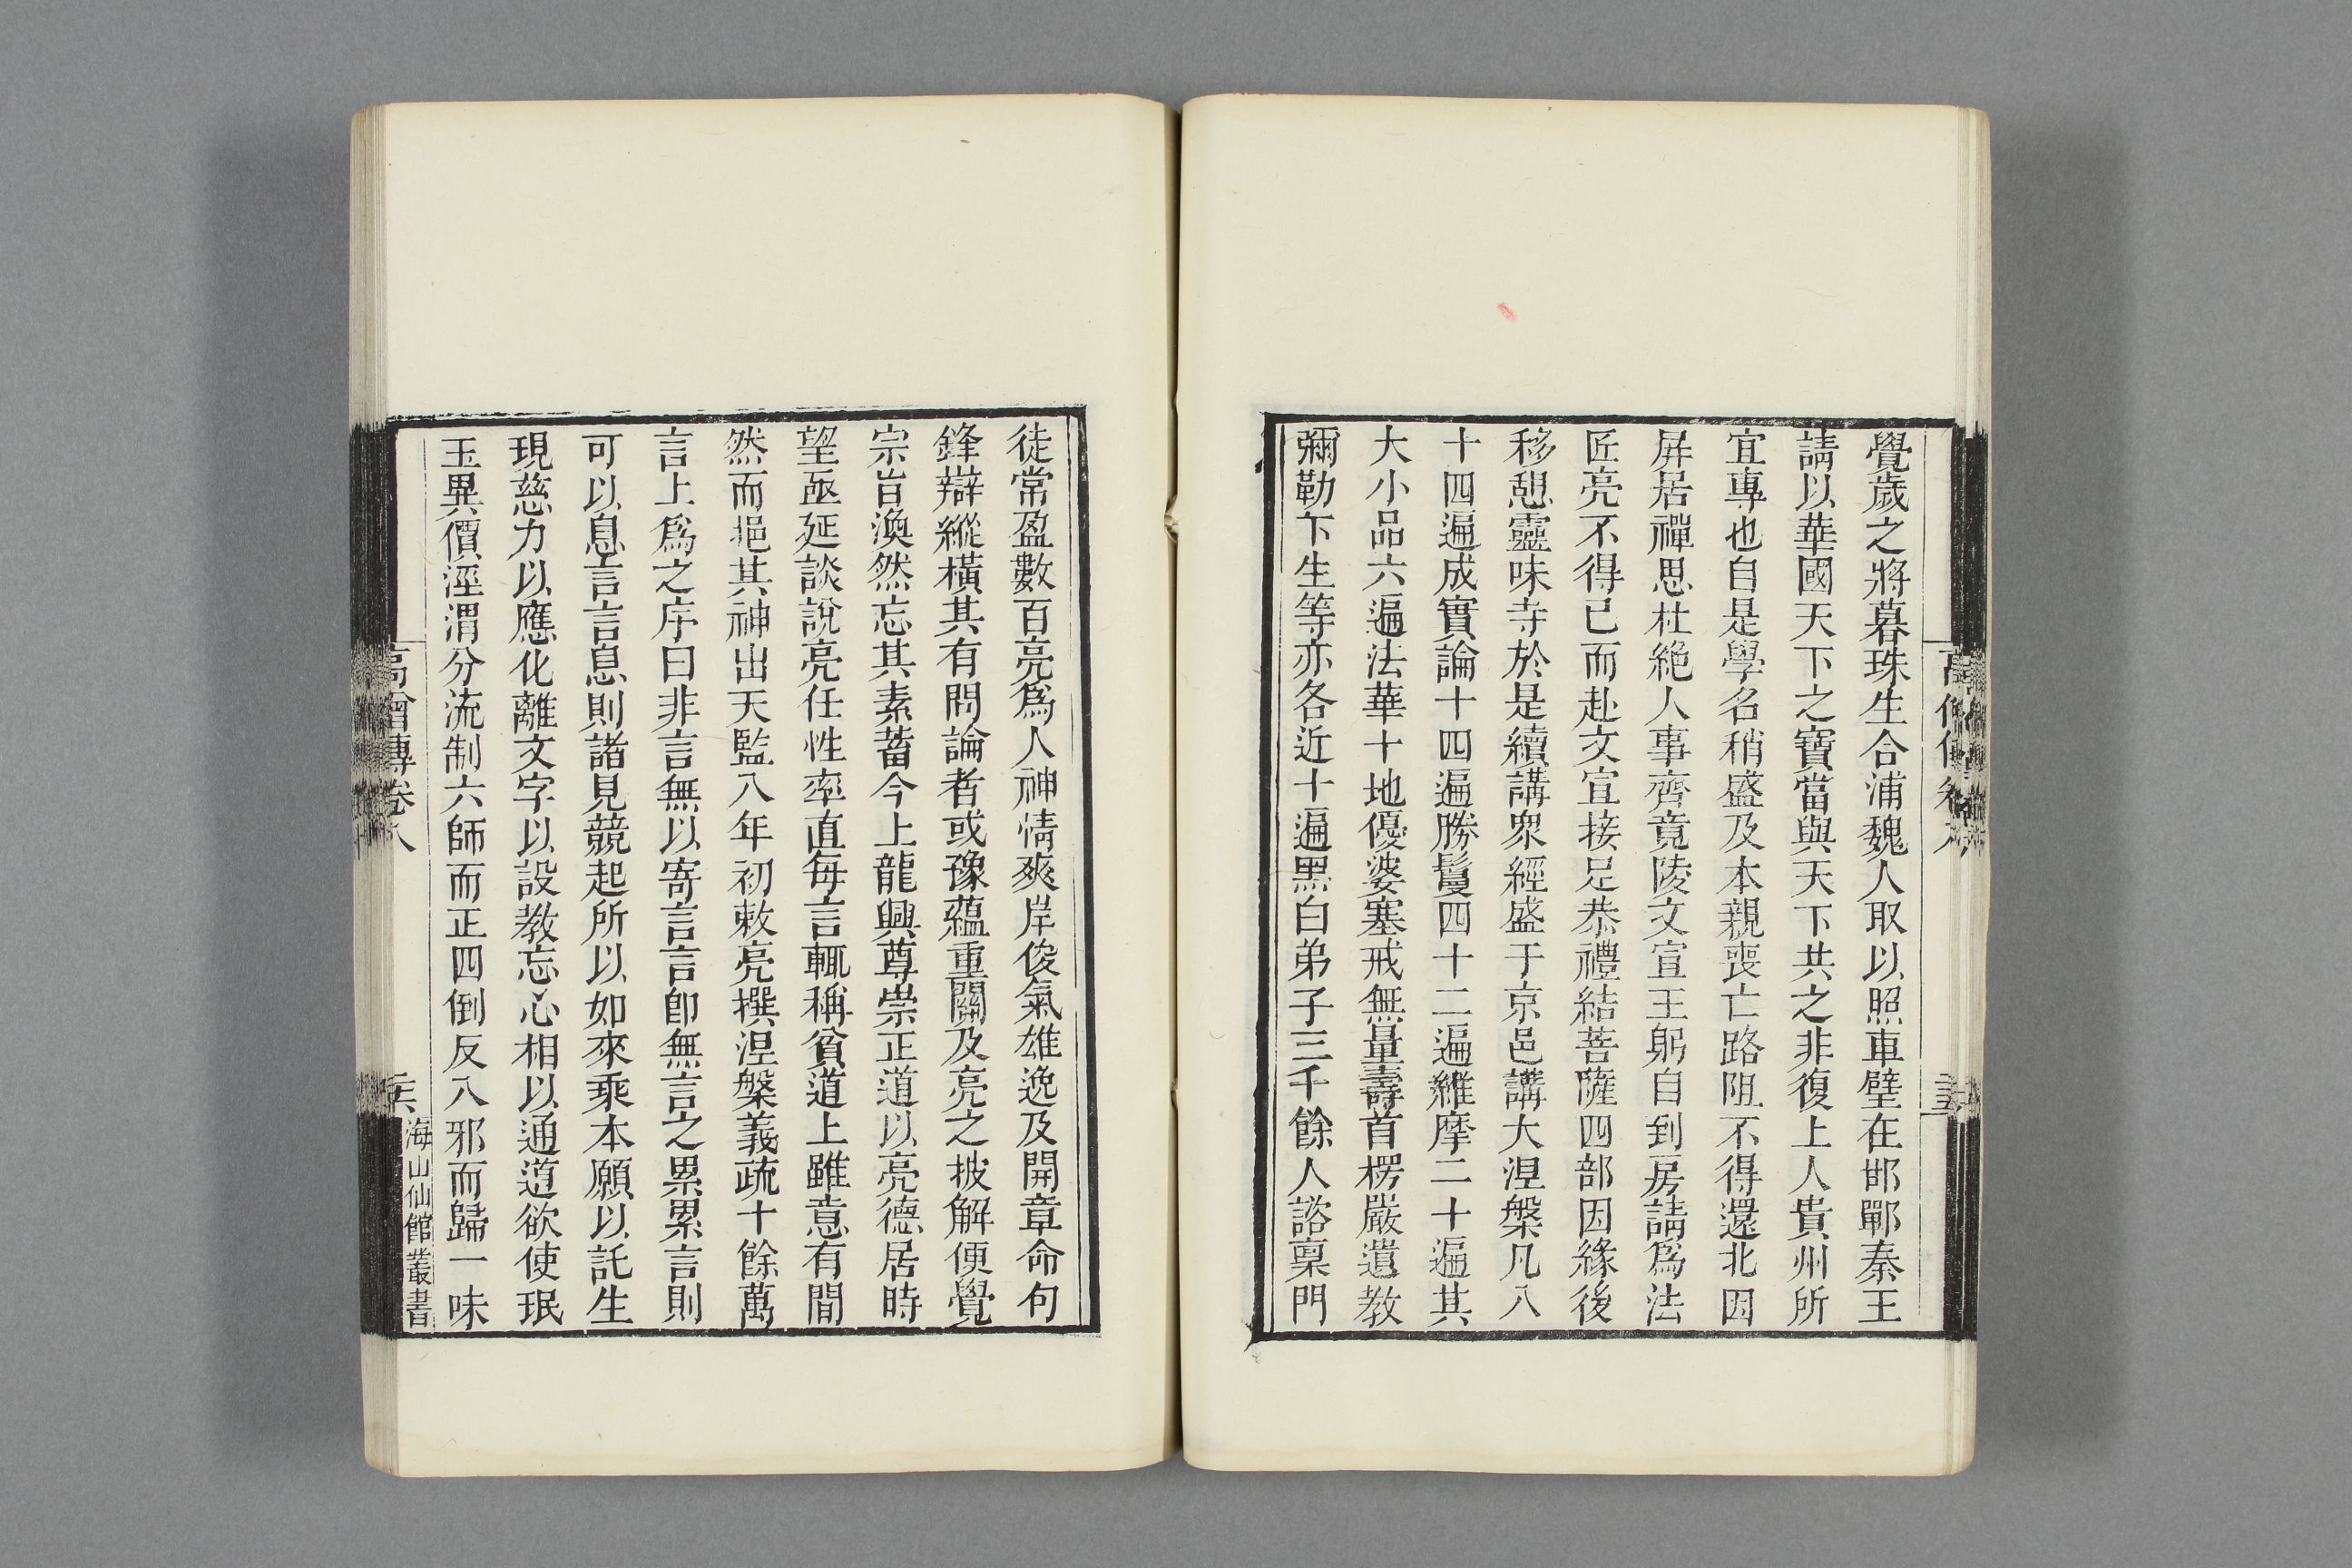 覺歲之將暮珠生合浦魏人取以照車璧在邯鄲秦王
請以華國天下之寶當與天下共之非復上人貴州所
宜專也自是學名稍盛及本親喪亡路阻不得還北因
屏居禪思杜絕人事齊竟陵文宣王躬自到房請爲法
匠亮不得已而赴文宣接足恭禮結菩薩四部因緣後
移憩靈味寺於是續講衆經盛于京邑講大涅槃凡八
十四遍成實論十四遍勝鬘四十二遍維摩二十遍其
大小品六遍法華十地優婆塞戒無量壽首楞嚴遺教
彌勒下生等亦各近十遍黑白弟子三千餘人諮稟門
徒常盈數百亮爲人神情爽岸俊氣雄逸及開章命句
鋒辯縱橫其有問論者或豫蘊重關及亮之披解便覺
宗旨渙然忘其素蓄今上龍興尊崇正道以亮德居時
望亟延談說亮任性率直每言輒稱貧道上雖意有間
然而挹其神出天監八年初敕亮撰涅槃義疏十餘萬
言上爲之序曰非言無以寄言言卽無言之累累言則
可以息言言息則諸見競起所以如來乘本願以託生
現慈力以應化離文字以設教忘心相以通道欲使珉
玉異價涇渭分流制六師而正四倒反八邪而歸一味
高僧傳卷八
海山仙館叢書